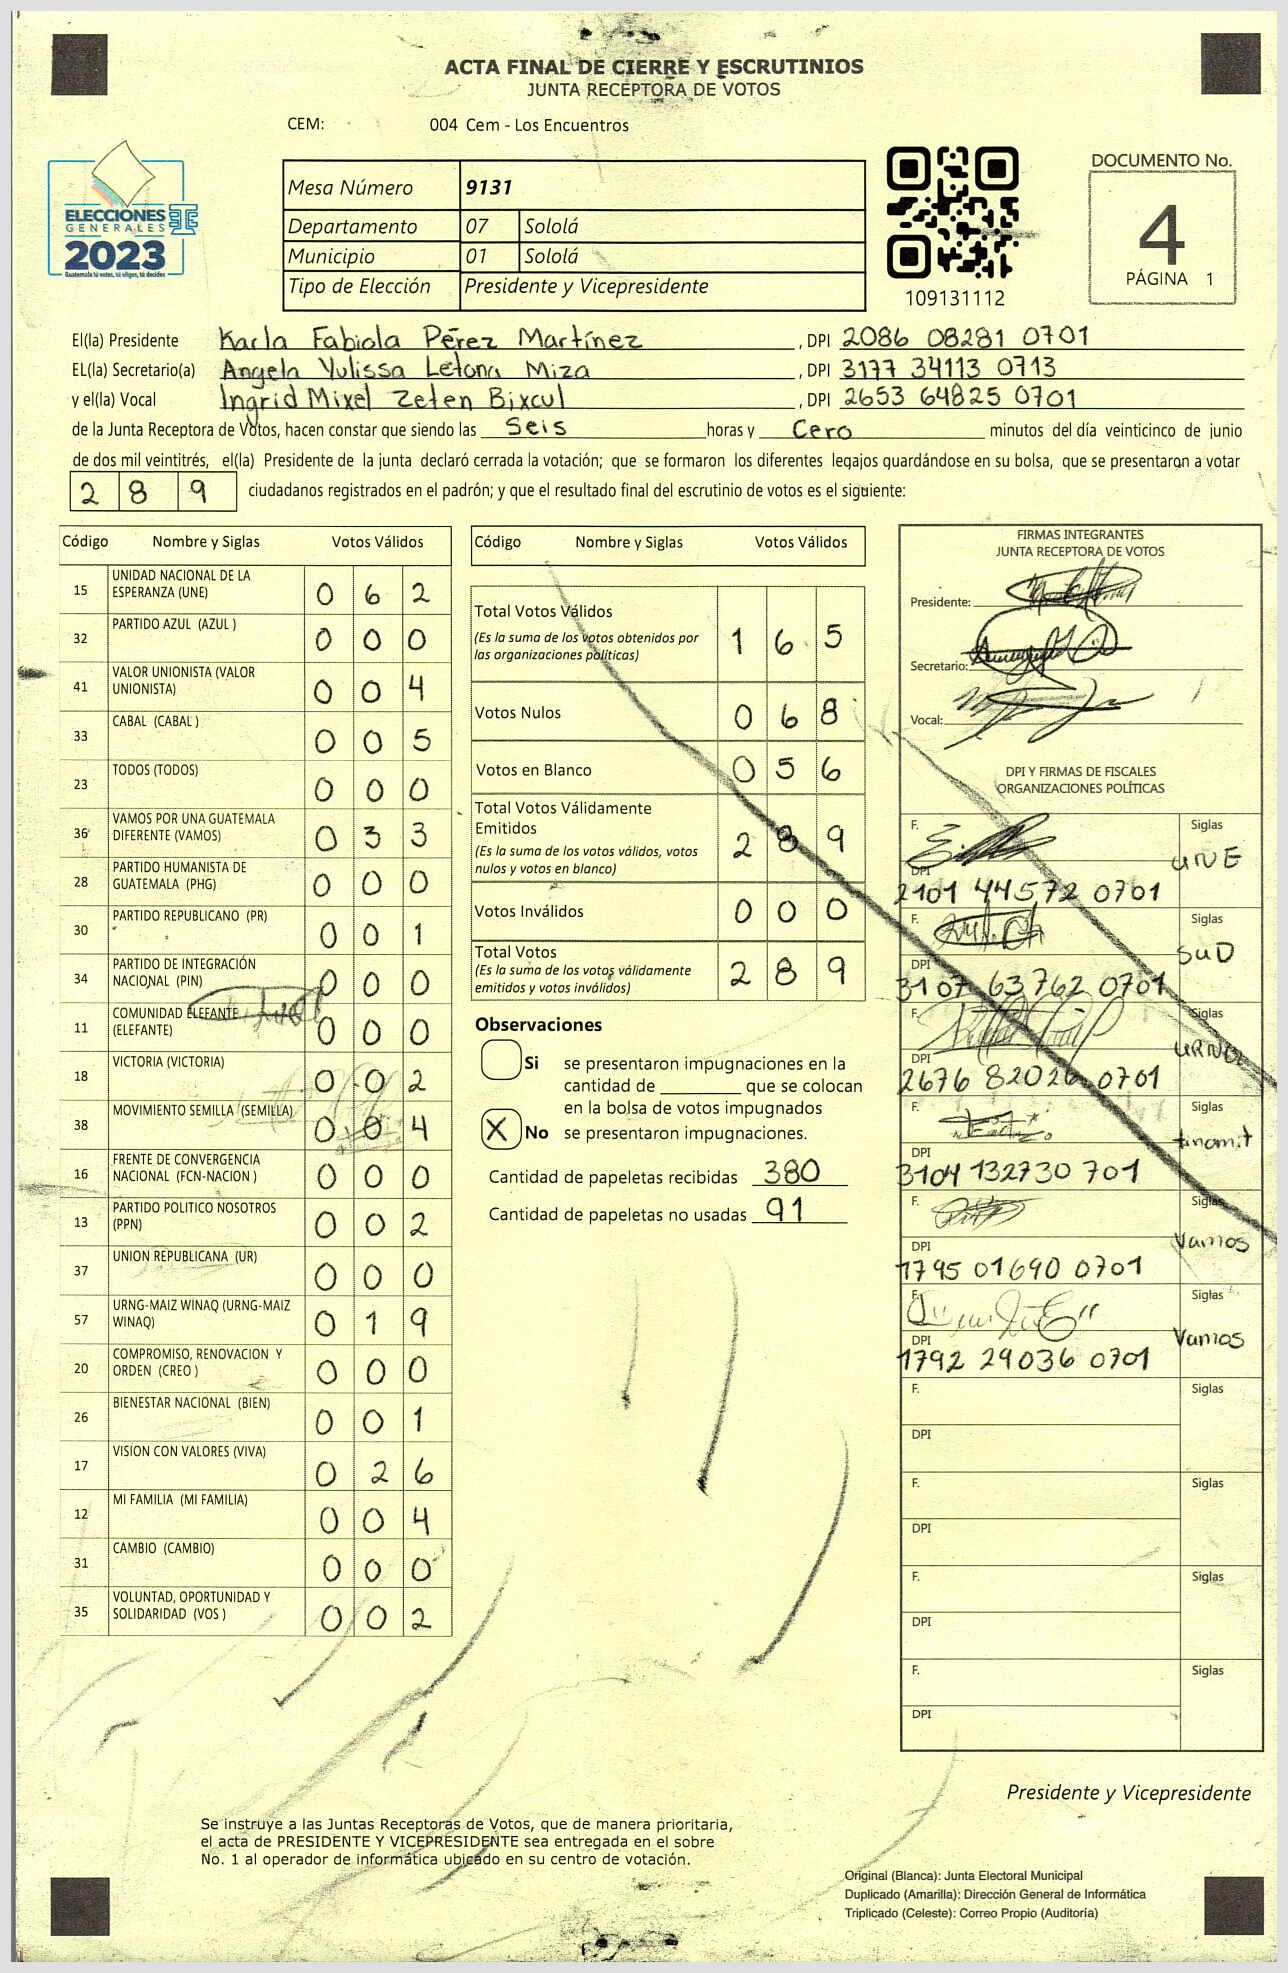 ACTA FINAL DE CIERRE Y ESCRUTINIOS
JUNTA RECEPTORA DE VOTOS
CEM: 004 Cem - Los Encuentros
ELECCIONES
GENERALES
2023
Guatemala tú votas, tú eliges, tú decides
Mesa Número 9131
Departamento 07 Sololá
Municipio 01 Sololá
Tipo de Elección Presidente y Vicepresidente
109131112
DOCUMENTO No.
4
PÁGINA 1
El(la) Presidente Karla Fabiola Pérez Martínez, DPI 2086 08281 0701
EL(la) Secretario(a) Angela Yulissa Letona Miza, DPI 3177 34113 0713
y el(la) Vocal Ingrid Mixel Zeten Bixcul, DPI 2653 64825 0701
de la Junta Receptora de Votos, hacen constar que siendo las Seis horas y Cero minutos del día veinticinco de junio
de dos mil veintitrés, el(la) Presidente de la junta declaró cerrada la votación; que se formaron los diferentes legajos guardándose en su bolsa, que se presentaron a votar
289 ciudadanos registrados en el padrón; y que el resultado final del escrutinio de votos es el siguiente:
Código Nombre y Siglas Votos Válidos
15 UNIDAD NACIONAL DE LA ESPERANZA (UNE) 0 6 2
32 PARTIDO AZUL (AZUL ) 0 0 0
41 VALOR UNIONISTA (VALOR UNIONISTA) 0 0 4
33 CABAL (CABAL ) 0 0 5
23 TODOS (TODOS) 0 0 0
36 VAMOS POR UNA GUATEMALA DIFERENTE (VAMOS) 0 3 3
28 PARTIDO HUMANISTA DE GUATEMALA (PHG) 0 0 0
30 PARTIDO REPUBLICANO (PR) 0 0 1
34 PARTIDO DE INTEGRACIÓN NACIONAL (PIN) 0 0 0
11 COMUNIDAD ELEFANTE (ELEFANTE) 0 0 0
18 VICTORIA (VICTORIA) 0 0 2
38 MOVIMIENTO SEMILLA (SEMILLA) 0 0 4
16 FRENTE DE CONVERGENCIA NACIONAL (FCN-NACION ) 0 0 0
13 PARTIDO POLITICO NOSOTROS (PPN) 0 0 2
37 UNION REPUBLICANA (UR) 0 0 0
57 URNG-MAIZ WINAQ (URNG-MAIZ WINAQ) 0 1 9
20 COMPROMISO, RENOVACION Y ORDEN (CREO ) 0 0 0
26 BIENESTAR NACIONAL (BIEN) 0 0 1
17 VISION CON VALORES (VIVA) 0 2 6
12 MI FAMILIA (MI FAMILIA) 0 0 4
31 CAMBIO (CAMBIO) 0 0 0
35 VOLUNTAD, OPORTUNIDAD Y SOLIDARIDAD (VOS ) 0 0 2
Código Nombre y Siglas Votos Válidos
Total Votos Válidos 1 6 5
(Es la suma de los votos obtenidos por
las organizaciones políticas)
Votos Nulos 0 6 8
Votos en Blanco 0 5 6
Total Votos Válidamente
Emitidos 2 8 9
(Es la suma de los votos válidos, votos
nulos y votos en blanco)
Votos Inválidos 0 0 0
Total Votos 2 8 9
(Es la suma de los votos válidamente
emitidos y votos inválidos)
Observaciones
Si se presentaron impugnaciones en la
cantidad de ________ que se colocan
en la bolsa de votos impugnados
X No se presentaron impugnaciones.
Cantidad de papeletas recibidas 380
Cantidad de papeletas no usadas 91
FIRMAS INTEGRANTES
JUNTA RECEPTORA DE VOTOS
Presidente:
Secretario:
Vocal:
DPI Y FIRMAS DE FISCALES
ORGANIZACIONES POLÍTICAS
F. Siglas UNE
DPI 2101 44572 0701
F. Siglas SUD
DPI 3107 63762 0701
F. Siglas
DPI 2676 82026 0701
F. Siglas tinamit
DPI 3104 132730 701
F. Siglas Vamos
DPI 1795 01690 0701
F. Siglas Vamos
DPI 1792 29036 0701
F. Siglas
DPI
F. Siglas
DPI
F. Siglas
DPI
F. Siglas
DPI
Presidente y Vicepresidente
Se instruye a las Juntas Receptoras de Votos, que de manera prioritaria,
el acta de PRESIDENTE Y VICEPRESIDENTE sea entregada en el sobre
No. 1 al operador de informática ubicado en su centro de votación.
Original (Blanca): Junta Electoral Municipal
Duplicado (Amarilla): Dirección General de Informática
Triplicado (Celeste): Correo Propio (Auditoría)